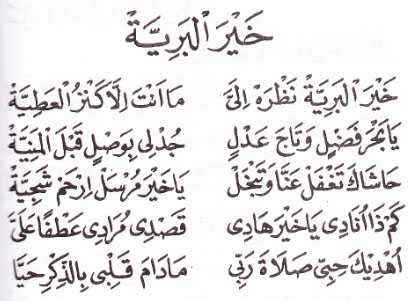 خَيْرَ الْبَرِيَّةْ
خَيْرَ الْبَرِيَّةْ نَظْرَةْ اِلَيَّ مَا اَنْتَ اِلَّا كَنْزُ الْعَطِيَّةْ
يَا بَحْرَ فَضْلٍ وَتَاجَ عَدْلٍ جُدْلِى بِوَصْلٍ قَبْلَ الْمَنِيَّةْ
حَاشَاكَ تَغْفَلْ عَنَّا وَتَبْخَلْ يَا خَيْرَ مُرْسَلْ اِرْحَمْ شَجِيَّةْ
كَمْ ذَا اُنَادِى يَا خَيْرَ هَادِى قَصْدِى مُرَادِى عَطْفًا عَلَيَّ
اُهْدِيْكَ حِبِّى صَلَاةَ رَبِّى مَادَامَ قَلْبِى بِالذِّكْرِ حَيًّا